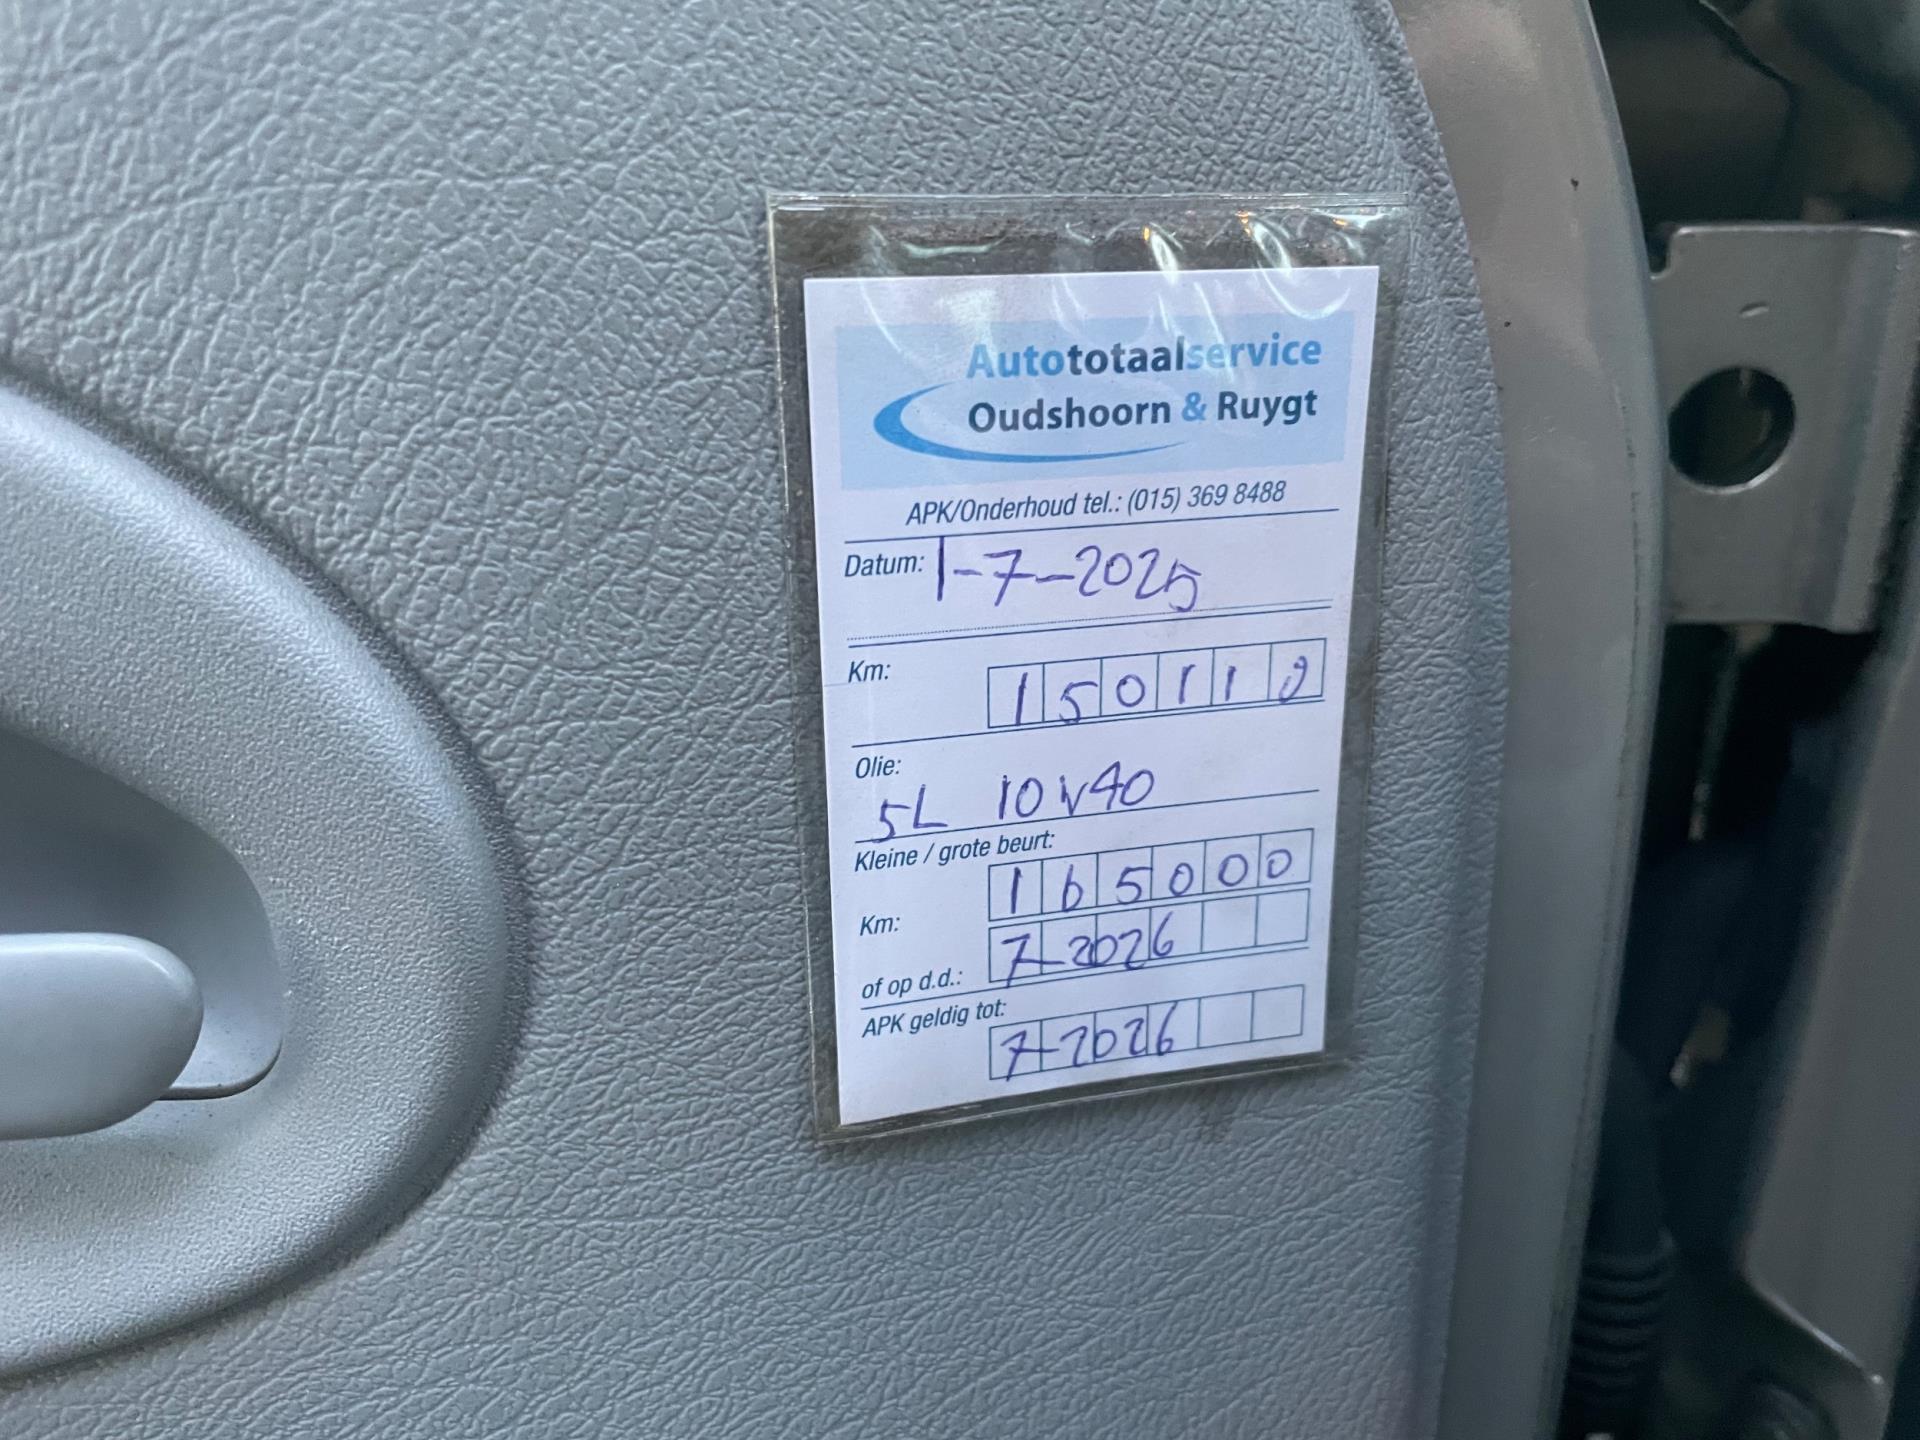 Autototaalservice
Oudshoorn & Ruygt
APK/Onderhoud tel.: (015) 369 8488
Datum: 1-7-2025
Km:
Olie:
5L 10W40
Kleine / grote beurt:
Km: 165000
of op d.d.: 7-2026
APK geldig tot: 7-2026